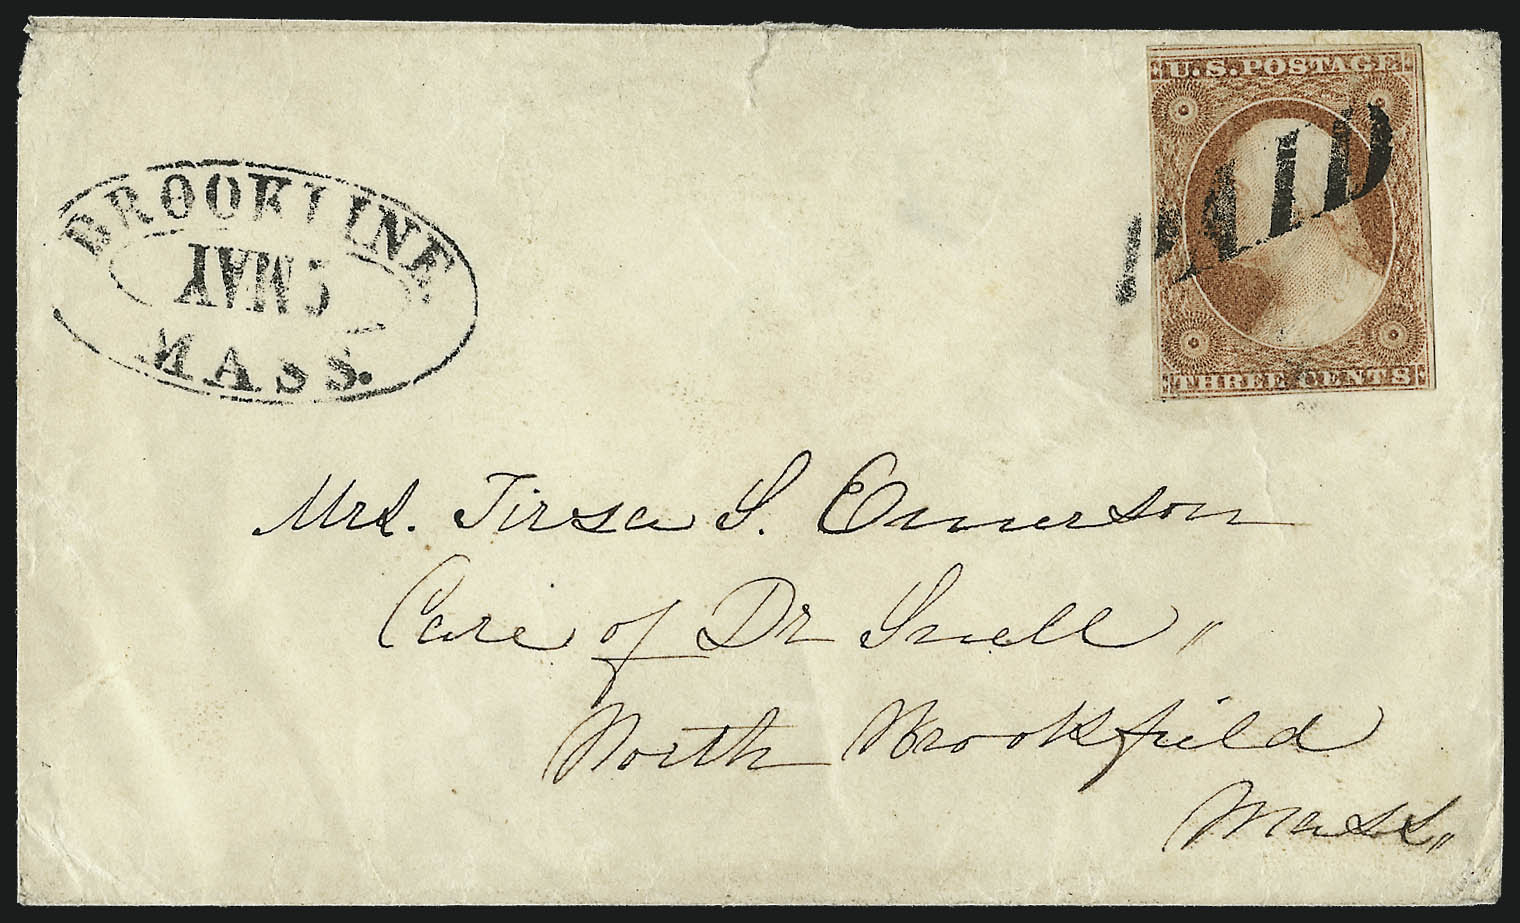 BROOKLINE.
MAY 5
MASS.
U.S. POSTAGE
PAID
THREE CENTS
Mrs. Tirsa S. Emerson
Care of Dr Snell "
North Brookfield
Mass "